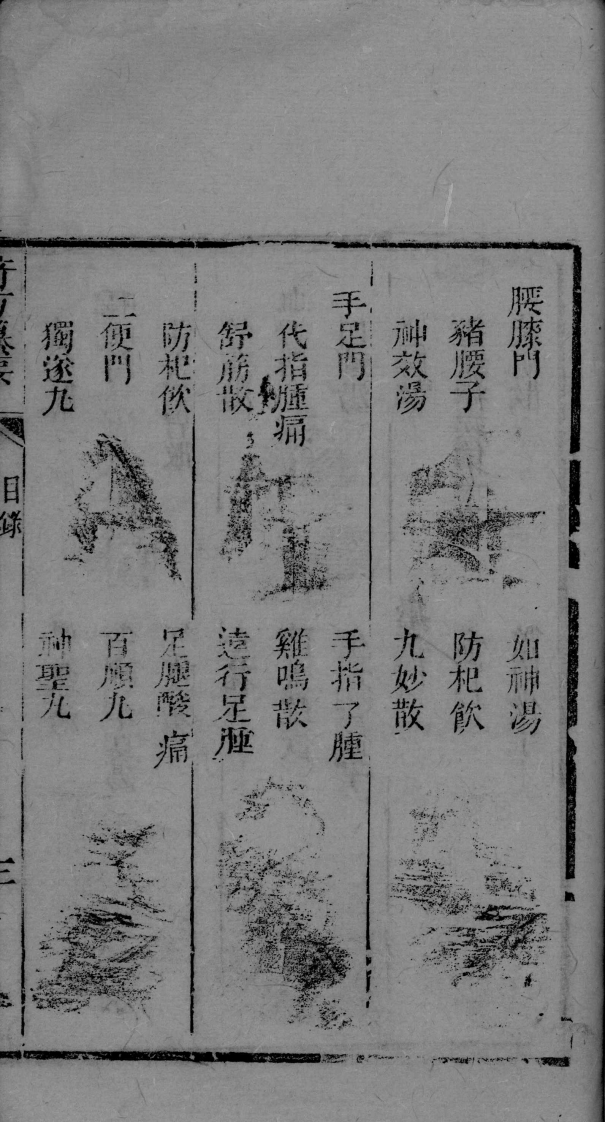 腰膝門 如神湯
豬腰子 防杞飲
神效湯 九妙散
手足門 手指了腫
代指腫痛 雞鳴散
舒筋散 遠行足腫
防杞飲 足腿酸痛
二便門 百順丸
獨遂丸 神聖丸
目錄
三